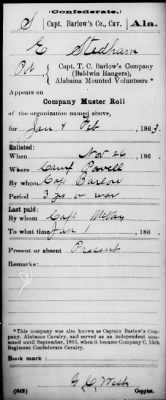 (Confederate.)
S Capt. Barlow's Co., Cav. Ala.
E Stedham
Pvt, Capt. T. C. Barlow's Company
(Baldwin Rangers),
Alabama Mounted Volunteers*
Appears on
Company Muster Roll
of the organization named above,
for Jan & Feb, 1863.
Enlisted:
When Nov 26, 186
Where Camp Powell
By whom Cap Barlow
Period 3 yrs or war
Last paid:
By whom Capt McVoy
To what time Jan 1, 186
Present or absent Present
Remarks:
*This company was also known as Captain Barlow's Company, Alabama Cavalry, and served as an independent command until September, 1863, when it became Company C, 15th Regiment Confederate Cavalry.
Book mark:
(642) Copyist.